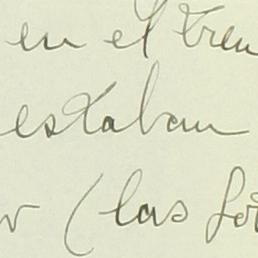 en el tren
estaban
(las